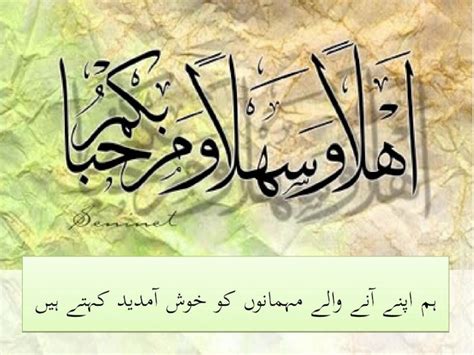 أهلاً وسهلاً ومرحبا بكم
Seninet
ہم اپنے آنے والے مہمانوں کو خوش آمدید کہتے ہیں